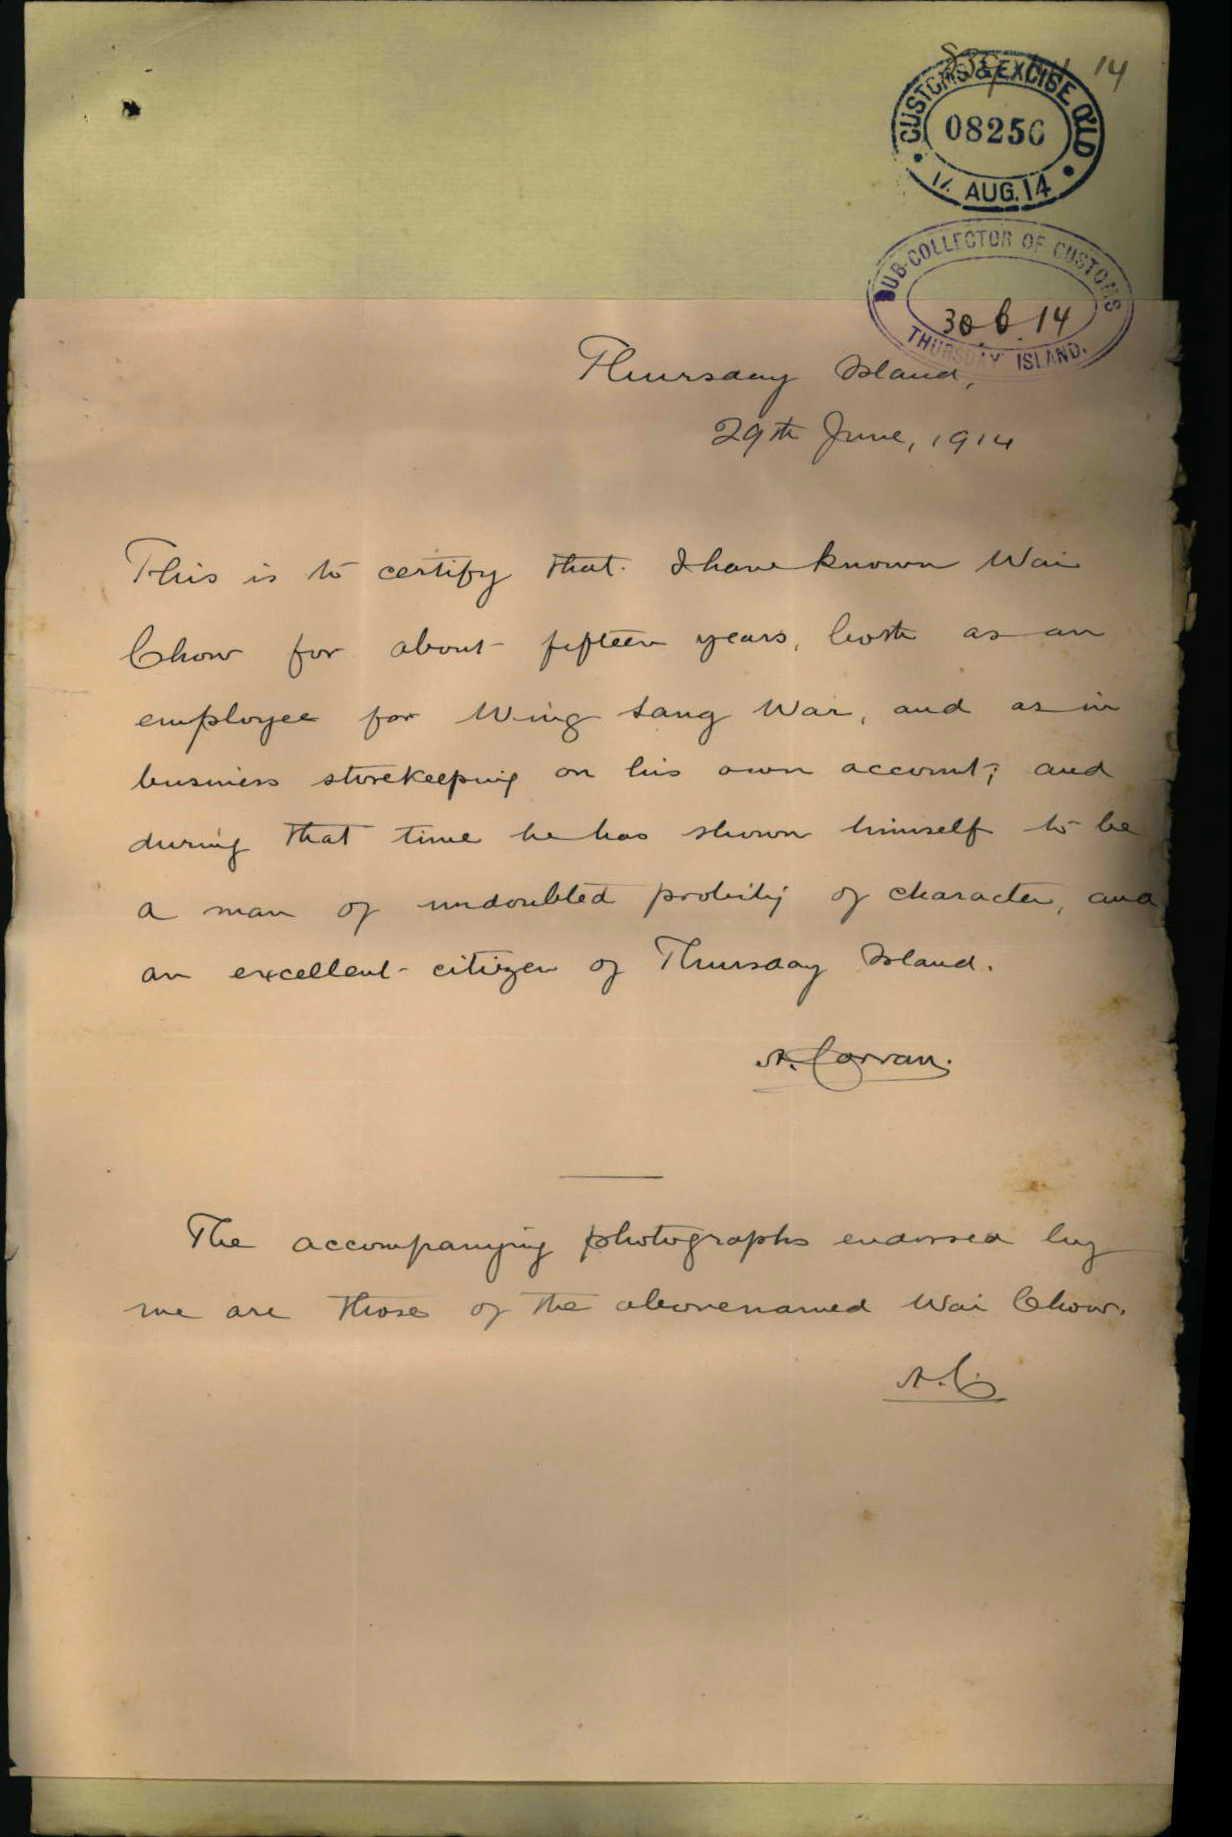 14
CUSTOMS & EXCISE Q'LD
08256
AUG. 14
SUB-COLLECTOR OF CUSTOMS
30 6 14
THURSDAY ISLAND.
Thursday Island,
29th June, 1914
This is to certify that I have known Wai
Chow for about fifteen years, both as an
employee for Wing Sang War, and as in
business storekeeping on his own account; and
during that time he has shown himself to be
a man of undoubted probity of character, and
an excellent citizen of Thursday Island.
A. Corran.
The accompanying photographs endorsed by
me are those of the abovenamed Wai Chow.
A.C.